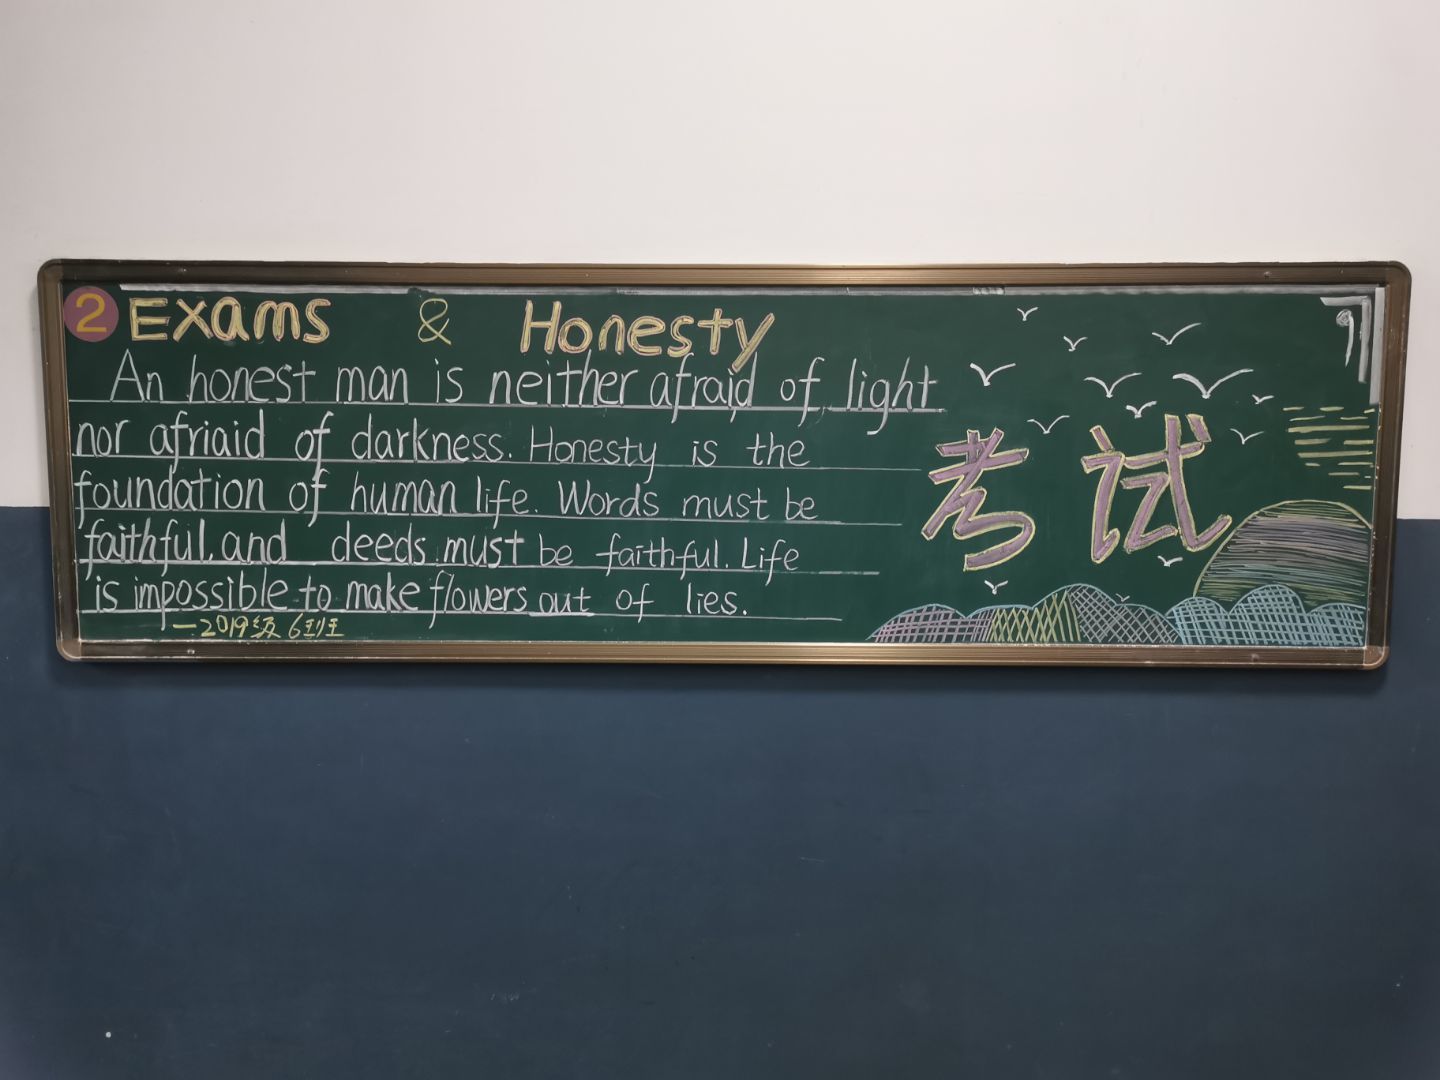 2 Exams & Honesty
An honest man is neither afraid of light
nor afriaid of darkness. Honesty is the
foundation of human life. Words must be
faithful, and deeds must be faithful. Life
is impossible to make flowers out of lies.
—2019级6班
考试